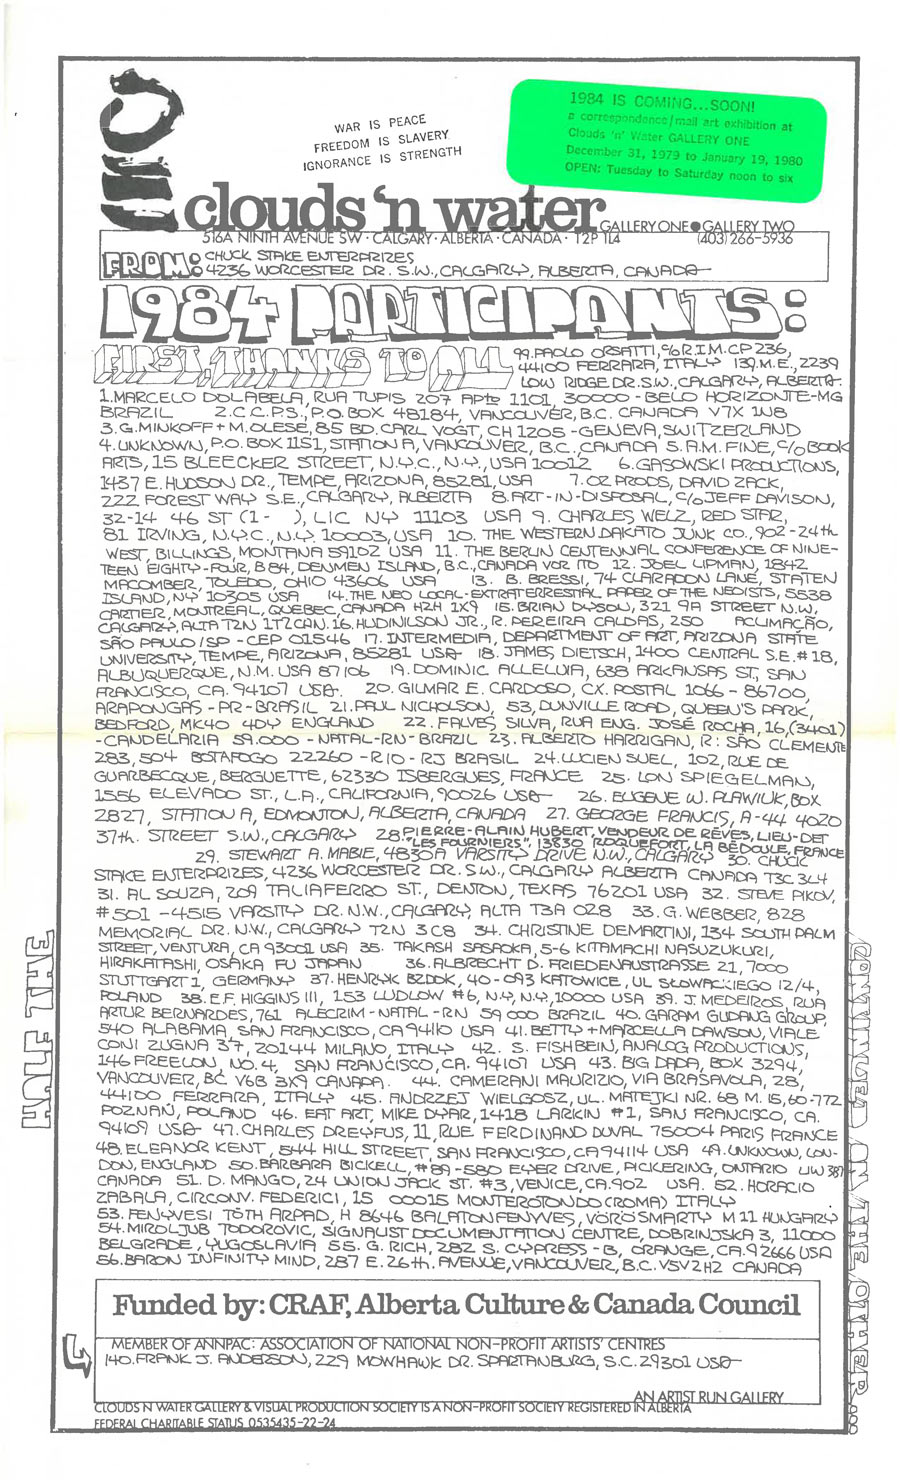 WAR IS PEACE
FREEDOM IS SLAVERY
IGNORANCE IS STRENGTH
1984 IS COMING...SOON!
a correspondence/mail art exhibition at
Clouds 'n' Water GALLERY ONE
December 31, 1979 to January 19, 1980
OPEN: Tuesday to Saturday noon to six
clouds 'n water GALLERY ONE ● GALLERY TWO
516A NINTH AVENUE SW · CALGARY · ALBERTA · CANADA · T2P 1L4 (403) 266-5936
FROM: CHUCK STAKE ENTERPRIZES
4236 WORCESTER DR. S.W., CALGARY, ALBERTA, CANADA
1984 PARTICIPANTS:
FIRST, THANKS TO ALL
99. PAOLO ORSATTI, c/o R.I.M. CP 236,
44100 FERRARA, ITALY 139. M.E., 2239
LOW RIDGE DR. S.W., CALGARY, ALBERTA.
1. MARCELO DOLABELA, RUA TUPIS 207 APto 1101, 30000 - BELO HORIZONTE-MG
BRAZIL 2. C.C.P.S., P.O. BOX 48184, VANCOUVER, B.C. CANADA V7X 1N8
3. G. MINKOFF + M. OLESE, 85 BD. CARL VOGT, CH 1205 - GENEVA, SWITZERLAND
4. UNKNOWN, P.O. BOX 1151, STATION A, VANCOUVER, B.C., CANADA 5. A.M. FINE, c/o BOOK
ARTS, 15 BLEECKER STREET, N.Y.C., N.Y., USA 10012 6. GASOWSKI PRODUCTIONS,
1437 E. HUDSON DR., TEMPE, ARIZONA, 85281, USA 7. OZ PRODS, DAVID ZACK,
222 FOREST WAY S.E., CALGARY, ALBERTA 8. ART-IN-DISPOSAL, c/o JEFF DAVISON,
32-14 46 ST (1- ), LIC NY 11103 USA 9. CHARLES WELZ, RED STAR,
81 IRVING, N.Y.C., N.Y. 10003, USA 10. THE WESTERN DAKATO JUNK CO., 902-24th
WEST, BILLINGS, MONTANA 59102 USA 11. THE BERLIN CENTENNIAL CONFERENCE OF NINE-
TEEN EIGHTY-FOUR, B 84, DENMEN ISLAND, B.C., CANADA VOR ITO 12. JOEL LIPMAN, 1842
MACOMBER, TOLEDO, OHIO 43606 USA 13. B. BRESSI, 74 CLARADON LANE, STATEN
ISLAND, NY 10305 USA 14. THE NEO LOCAL-EXTRATERRESTIAL PAPER OF THE NEOISTS, 5538
CARTIER, MONTREAL, QUEBEC, CANADA H2H 1X9 15. BRIAN DYSON, 321 9A STREET N.W.
CALGARY, ALTA T2N 1T7 CAN. 16. HUDINILSON JR., R. PEREIRA CALDAS, 250 ACLIMAÇÃO,
SÃO PAULO/SP - CEP 01546 17. INTERMEDIA, DEPARTMENT OF ART, ARIZONA STATE
UNIVERSITY, TEMPE, ARIZONA, 85281 USA 18. JAMES DIETSCH, 1400 CENTRAL S.E. #18,
ALBUQUERQUE, N.M. USA 87106 19. DOMINIC ALLELUIA, 638 ARKANSAS ST, SAN
FRANCISCO, CA. 94107 USA. 20. GILMAR E. CARDOSO, CX. POSTAL 1066 - 86700,
ARAPONGAS - PR - BRASIL 21. PAUL NICHOLSON, 53, DUNVILLE ROAD, QUEEN'S PARK,
BEDFORD, MK40 4DY ENGLAND 22. FALVES SILVA, RUA ENG. JOSÉ ROCHA, 16, (3401)
-CANDELARIA 59.000 - NATAL-RN-BRAZIL 23. ALBERTO HARRIGAN, R: SÃO CLEMENTE
283, 504 BOTAFOGO 22260 - RIO - RJ BRASIL 24. LUCIEN SUEL, 102, RUE DE
GUARBECQUE, BERGUETTE, 62330 ISBERGUES, FRANCE 25. LON SPIEGELMAN,
1556 ELEVADO ST., L.A., CALIFORNIA, 90026 USA 26. EUGENE W. PLAWIUK, BOX
2827, STATION A, EDMONTON, ALBERTA, CANADA 27. GEORGE FRANCIS, A-44 4020
37th. STREET S.W., CALGARY 28. PIERRE-ALAIN HUBERT, VENDEUR DE RÊVES, LIEU-DET
"LES FOURNIERS", 13830 ROQUEFORT, LA BÉDOULE, FRANCE
29. STEWART A. MABIE, 4830A VARSITY DRIVE N.W., CALGARY 30. CHUCK
STAKE ENTERPRIZES, 4236 WORCESTER DR. S.W., CALGARY ALBERTA CANADA T3C 3L4
31. AL SOUZA, 209 TALIAFERRO ST., DENTON, TEXAS 76201 USA 32. STEVE PIKOV,
#501 - 4515 VARSITY DR. N.W., CALGARY, ALTA T3A 0Z8 33. G. WEBBER, 828
MEMORIAL DR. N.W., CALGARY T2N 3C8 34. CHRISTINE DEMARTINI, 134 SOUTH PALM
STREET, VENTURA, CA 93001 USA 35. TAKASH SASAOKA, 5-6 KITAMACHI NASUZUKURI,
HIRAKATASHI, OSAKA FU JAPAN 36. ALBRECHT D. FRIEDENAUSTRASSE 21, 7000
STUTTGART 1, GERMANY 37. HENRYK BZDOK, 40-093 KATOWICE, UL SŁOWACKIEGO 12/4,
POLAND 38. E.F. HIGGINS III, 153 LUDLOW #6, N.Y, N.Y, 10000 USA 39. J. MEDEIROS, RUA
ARTUR BERNARDES, 761 ALECRIM - NATAL - RN 59 000 BRAZIL 40. GARAM GUDANG GROUP,
540 ALABAMA, SAN FRANCISCO, CA 94110 USA 41. BETTY + MARCELLA DAWSON, VIALE
CONI ZUGNA 37, 20144 MILANO, ITALY 42. S. FISHBEIN, ANALOG PRODUCTIONS,
146 FREELON, NO. 4, SAN FRANCISCO, CA. 94107 USA 43. BIG DADA, BOX 3294,
VANCOUVER, BC V6B 3X9 CANADA. 44. CAMERANI MAURIZIO, VIA BRASAVOLA, 28,
44100 FERRARA, ITALY 45. ANDRZEJ WIELGOSZ, UL. MATEJKI NR. 68 M. 15, 60-772
POZNAŃ, POLAND 46. EAT ART, MIKE DYAR, 1418 LARKIN #1, SAN FRANCISCO, CA.
94109 USA 47. CHARLES DREYFUS, 11, RUE FERDINAND DUVAL 75004 PARIS FRANCE
48. ELEANOR KENT, 544 HILL STREET, SAN FRANCISCO, CA 94114 USA 49. UNKNOWN, LON-
DON, ENGLAND 50. BARBARA BICKELL, #89-580 EYER DRIVE, PICKERING, ONTARIO LIW 3B7
CANADA 51. D. MANGO, 24 UNION JACK ST. #3, VENICE, CA. 902 USA. 52. HORACIO
ZABALA, CIRCONV. FEDERICI, 15 00015 MONTEROTONDO (ROMA) ITALY
53. FENYVESI TÓTH ARPAD, H 8646 BALATONFENYVES, VÖRÖSMARTY M 11 HUNGARY
54. MIROLJUB TODOROVIC, SIGNALIST DOCUMENTATION CENTRE, DOBRINJSKA 3, 11000
BELGRADE, YUGOSLAVIA 55. G. RICH, 282 S. CYPRESS - B, ORANGE, CA. 92666 USA
56. BARON INFINITY MIND, 287 E. 26th. AVENUE, VANCOUVER, B.C. V5V 2H2 CANADA
Funded by: CRAF, Alberta Culture & Canada Council
MEMBER OF ANNPAC: ASSOCIATION OF NATIONAL NON-PROFIT ARTISTS' CENTRES
140. FRANK J. ANDERSON, 229 MOWHAWK DR. SPARTANBURG, S.C. 29301 USA
AN ARTIST RUN GALLERY
CLOUDS N WATER GALLERY & VISUAL PRODUCTION SOCIETY IS A NON-PROFIT SOCIETY REGISTERED IN ALBERTA
FEDERAL CHARITABLE STATUS 0535435-22-24
HOLY FLIP THE
CONTINUED ON THE OTHER